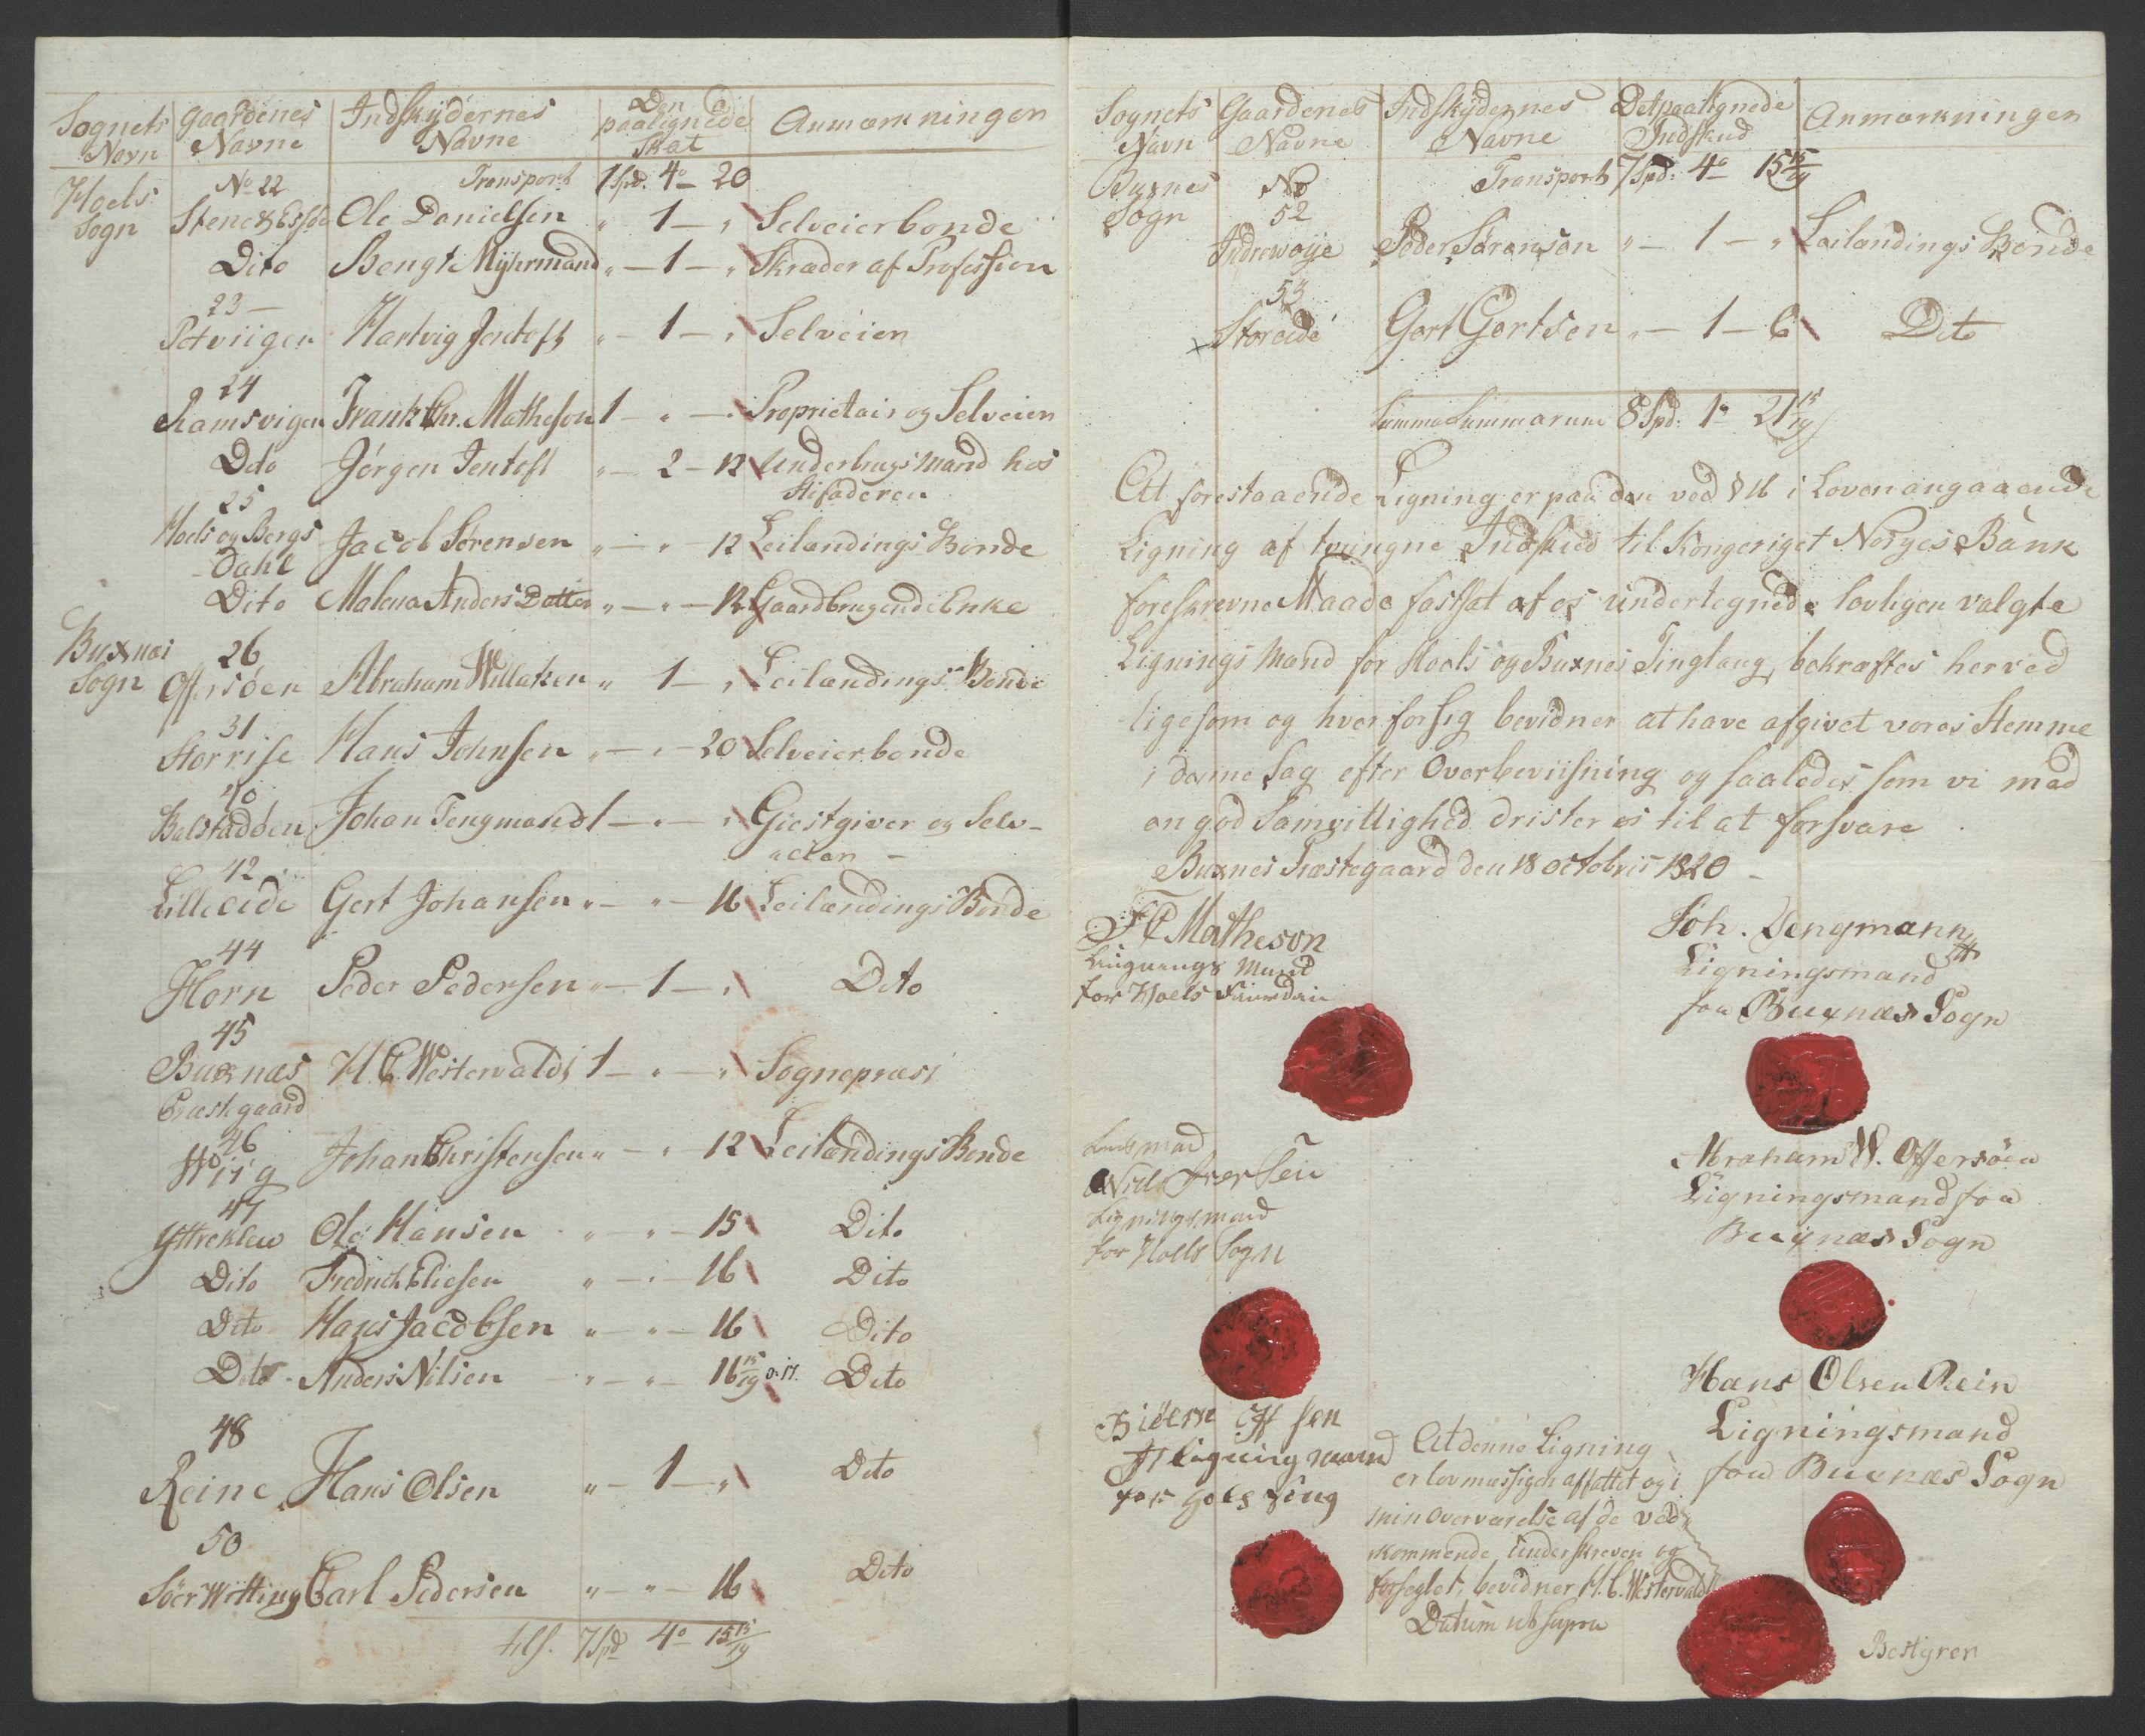 Sognets Navn | Gaardenes Navne | Indskydernes Navne | Den paalignede Skat | Anmærkninger
Transport 1 Spd. 4 20
Hoels Sogn | No 22 Ole Danielsen " 1 " Selveierbonde
Dito Bengt Myhrmand " 1 " Skræder af Profession
23 Petviigen Hartvig Jentoft " 1 " Selveier
24 Ramsvigen Frank Chr. Matheson 1 " " Proprietair og Selveier
Dito Jørgen Jentoft " 2 12 Underbrugsmand hos
Stifaderen
25 Hoels og Bergs Dahl Jacob Sørensen " " 12 Leilændings Bonde
Dito Malena Anders Datter " " 12 Gaardbrugende Enke
Buxnæs Sogn | 26 Offersøen Abraham Willatzen " 1 " Leilændings Bonde
31 Storrise Hans Johnsen " " 20 Selveierbonde
40 Balstadøen Johan Tengmand 1 " " Giestgiver og Selv-
eier
42 Lilleeide Gert Johansen " " 16 Leilændings Bonde
44 Horn Peder Pedersen " 1 " Dito
45 Buxnæs Præstgaard H. C. Westervaldt 1 " " Sognepræst
46 Wiig Johan Christensen " " 12 Leilændings Bonde
47 Ole Hansen " " 15 Dito
Dito Fredrich Eliesen " " 16 Dito
Dito Hans Jacobsen " " 16 Dito
Dito Anders Nilsen " " 16 15/19 Dito
48 Reine Hans Olsen " 1 " Dito
50 Sør Carl Pedersen " " 16 Dito
7 Spd 4 15 15/19
Sognets Navn | Gaardenes Navne | Indskydernes Navne | Det paalignede Indskud | Anmærkninger
Transport 7 Spd: 4 15 15/19
Buxnes Sogn | No 52 Peder Sørensen " 1 " Leilændings Bonde
53 Storeide Gert Gertsen " 1 6 Dito
Summa Summarum 8 Spd. 1 21 15/19
At forestaaende Ligning er paa den ved § 16 i Loven angaaende
Ligning af tvungne Indskud til Kongeriget Norges Bank
foreskrevne Maade fastsat af os undertegnede lovligen valgte
Ligningsmænd for Hoels og Buxnes Tinglaug, bekræftes herved
ligesom og hver for sig bevidner at have afgivet vores Stemme
i denne Sag efter Overbeviisning og saaledes som vi med
en god Samvittighed drister os til at forsvare
Buxnes Præstegaard den 18 octobris 1820
F C Matheson
Mand
for Hoels
Joh. Tengmann
Ligningsmand
for Buxnæs Sogn
Lensmand
Iversen
Ligningsmand
for Hoels Sogn
Abraham W. Offersøen
Ligningsmand for
Buxnæs Sogn
Ligning mand
for Hols Ting
Hans Olsen Rein
Ligningsmand
for Buxnæs Sogn
At denne Ligning
er lovmæssigen affattet og i
min Overværelse af de ved-
kommende underskreven og
forseglet, bevidner H. C. Westervaldt
Datum ut supra
Bestyrer